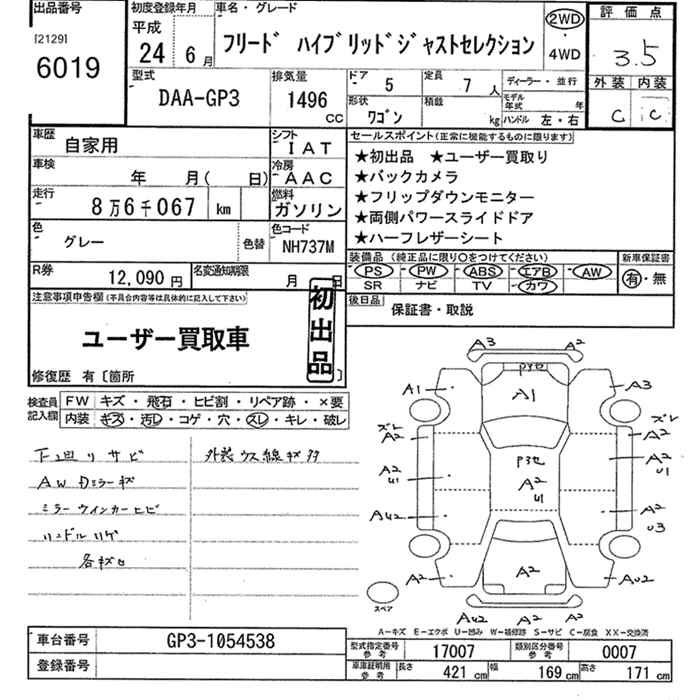 出品番号
[2129]
6019
初度登録年月
平成
24 6月
車名・グレード
フリード ハイブリッドジャストセレクション
2WD
・
4WD
評価点
3.5
外装 内装
C C
型式
DAA-GP3
排気量
1496
CC
ドア
5
定員
7人
形状
ワゴン
積載
kg
ディーラー・並行
モデル年式 年
ハンドル 左・右
車歴
自家用
シフト
IAT
車検
年 月( 日)
冷房
AAC
走行
8万6千067 km
燃料
ガソリン
色
グレー
色替
色コード
NH737M
R券
12,090円
名変通知期限
月 日
セールスポイント(正常に機能するものに限ります)
★初出品 ★ユーザー買取り
★バックカメラ
★フリップダウンモニター
★両側パワースライドドア
★ハーフレザーシート
装備品(純正品に限り○をつけてください)
PS PW ABS エアB AW
SR ナビ TV カワ
新車保証書
有・無
後日品
保証書・取説
注意事項申告欄(不具合内容等は具体的に記入して下さい)
ユーザー買取車
初出品
修復歴 有〔箇所 〕
検査員記入欄
FW キズ・飛石・ヒビ割・リペア跡・×要
内装 キズ・汚レ・コゲ・穴・スレ・キレ・破レ
下廻りサビ
外装ウス線キズ
AW Dミラーキズ
ミラーウィンカーヒビ
ハンドルハゲ
各キズ凹
A3 A2
P多 A1
A1 A3
ズレ A2
ズレ A2
A2 U1
P多 A2 U1
A2 U1
AU2
A2 U3
A2 A2 AU2
スペア
AU2 A2 A2
A-キズ E-エクボ U-凹み W-補修跡 S-サビ C-腐食 XX-交換済
車台番号
GP3-1054538
登録番号
型式指定番号参考
17007
類別区分番号参考
0007
車庫証明用参考
長さ 421cm 幅 169cm 高さ 171cm